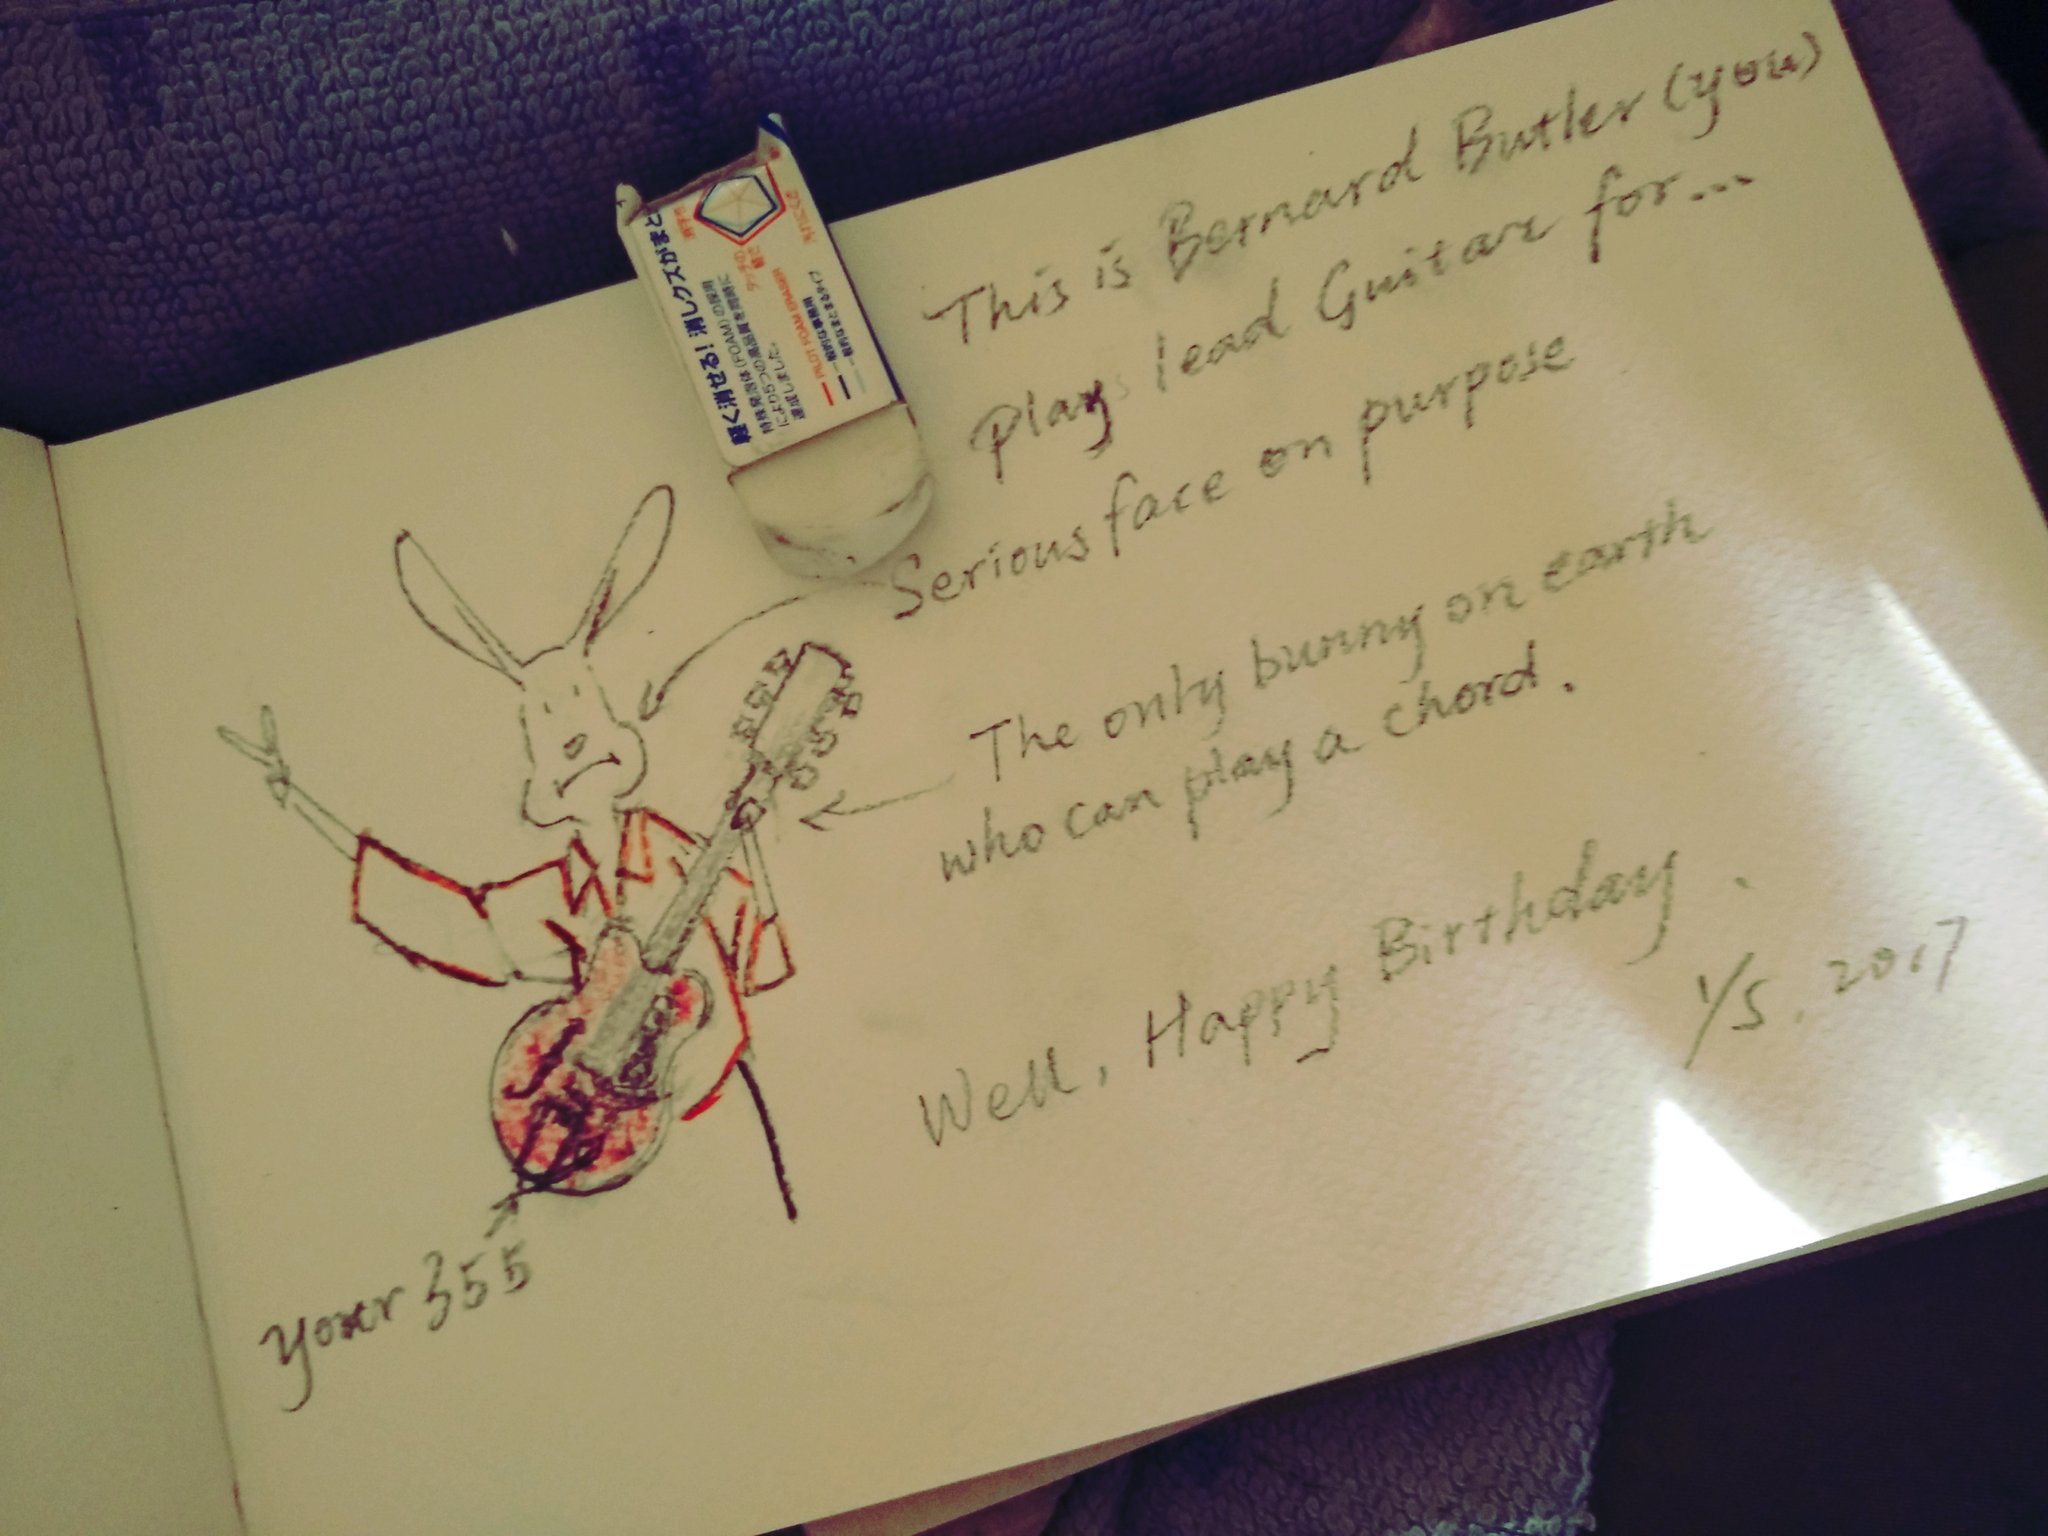 This is Bernard Butler (you)
Plays lead Guitar for...
Serious face on purpose
The only bunny on earth
who can play a chord.
Well, Happy Birthday.
1/5. 2017
your 355
軽く消せる! 消しクズがまと
特殊発泡体(FOAM)の採用
により5つの高品質を同時に
達成しました。
PILOT FOAM ERASER
一般的な事務用
一般的なまとまるタイプ